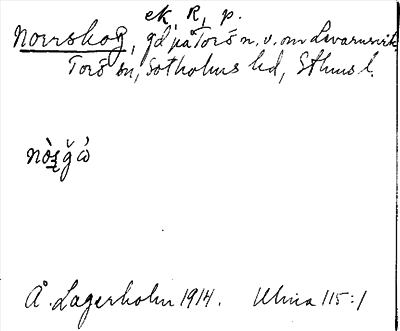 ek, R, p.
Norrskog, gd på Torö n. v. om Svarvarvik,
Torö sn, Sotholms hd, Sthms l.
Å. Lagerholm 1914. Uhma 115:1